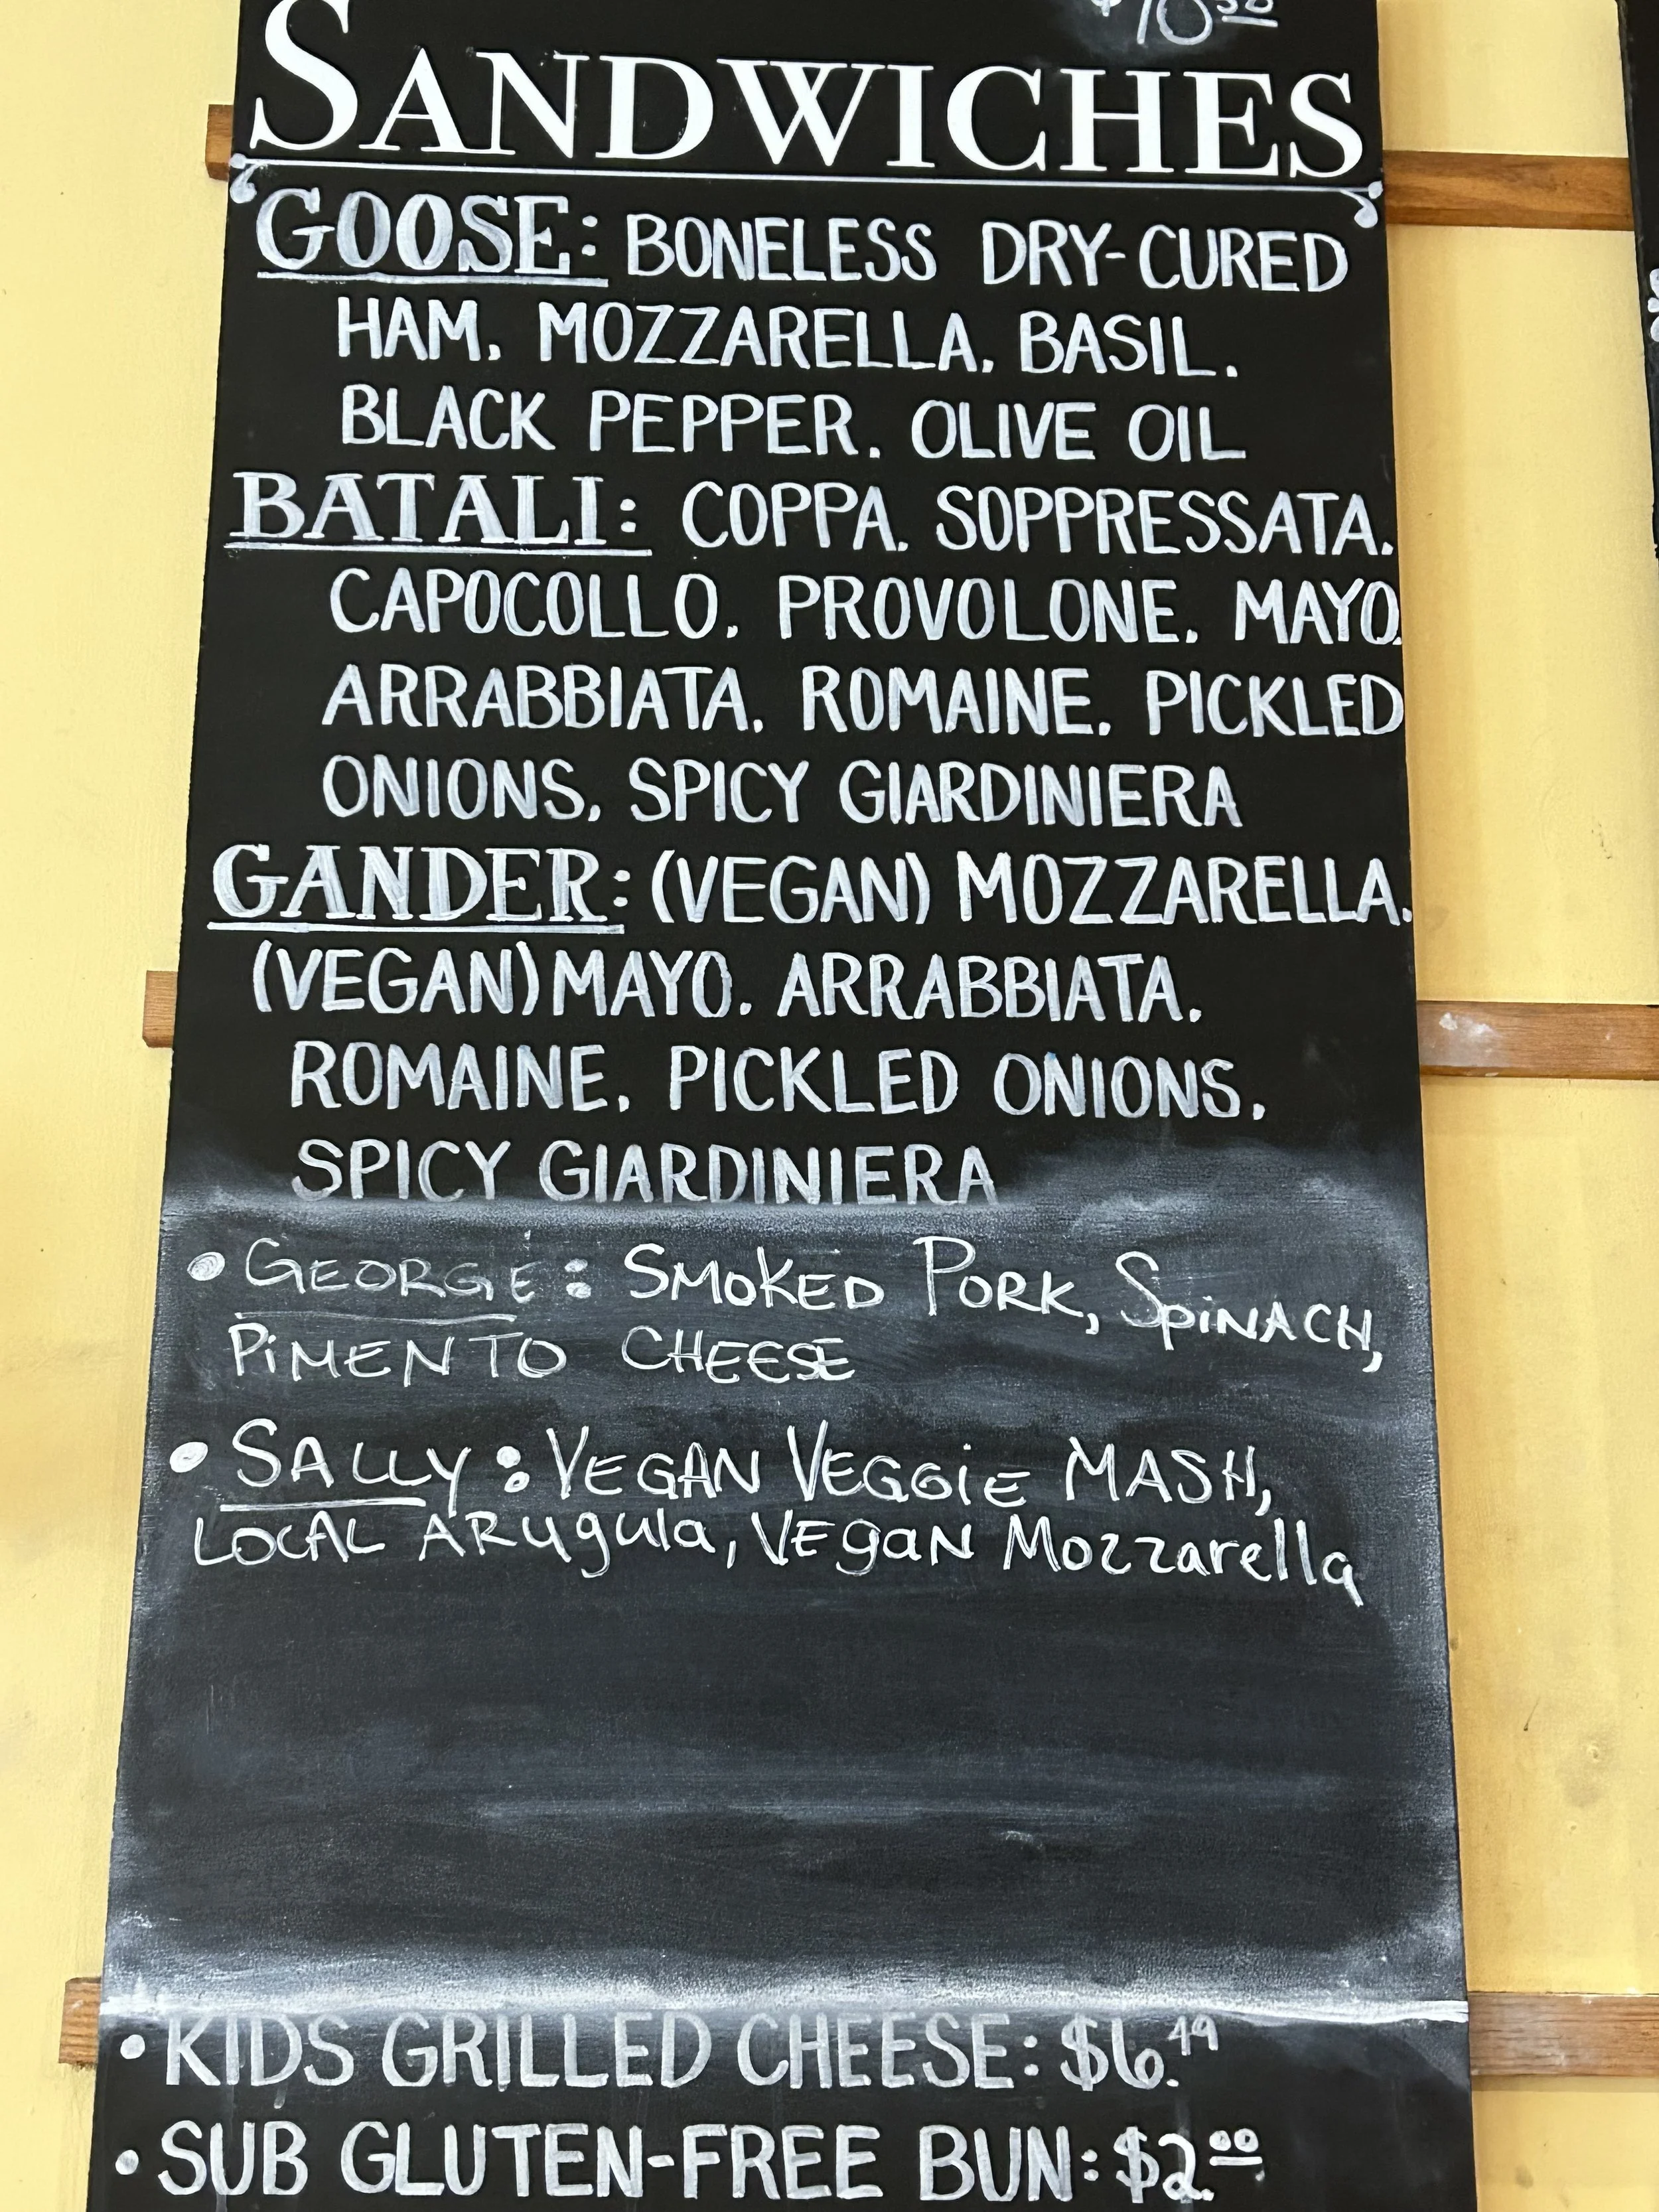 $10.50
SANDWICHES
GOOSE: BONELESS DRY-CURED
HAM, MOZZARELLA, BASIL,
BLACK PEPPER, OLIVE OIL
BATALI: COPPA, SOPPRESSATA,
CAPOCOLLO, PROVOLONE, MAYO,
ARRABBIATA, ROMAINE, PICKLED
ONIONS, SPICY GIARDINIERA
GANDER: (VEGAN) MOZZARELLA,
(VEGAN) MAYO, ARRABBIATA,
ROMAINE, PICKLED ONIONS,
SPICY GIARDINIERA
• GEORGE: SMOKED PORK, SPINACH,
PIMENTO CHEESE
• SALLY: VEGAN VEGGIE MASH,
LOCAL ARugula, VEgaN Mozzarella
• KIDS GRILLED CHEESE: $6.49
• SUB GLUTEN-FREE BUN: $2.00